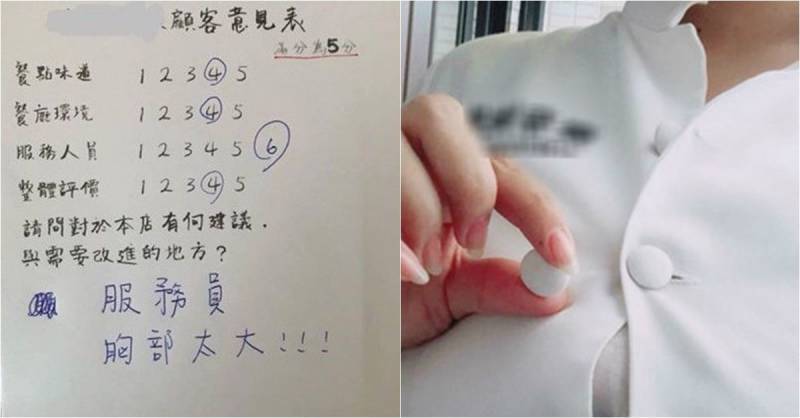 顧客意見表
滿分為5分
餐點味道 1 2 3 4 5
餐廳環境 1 2 3 4 5
服務人員 1 2 3 4 5 6
整體評價 1 2 3 4 5
請問對於本店有何建議.
與需要改進的地方?
服務員
胸部太大!!!